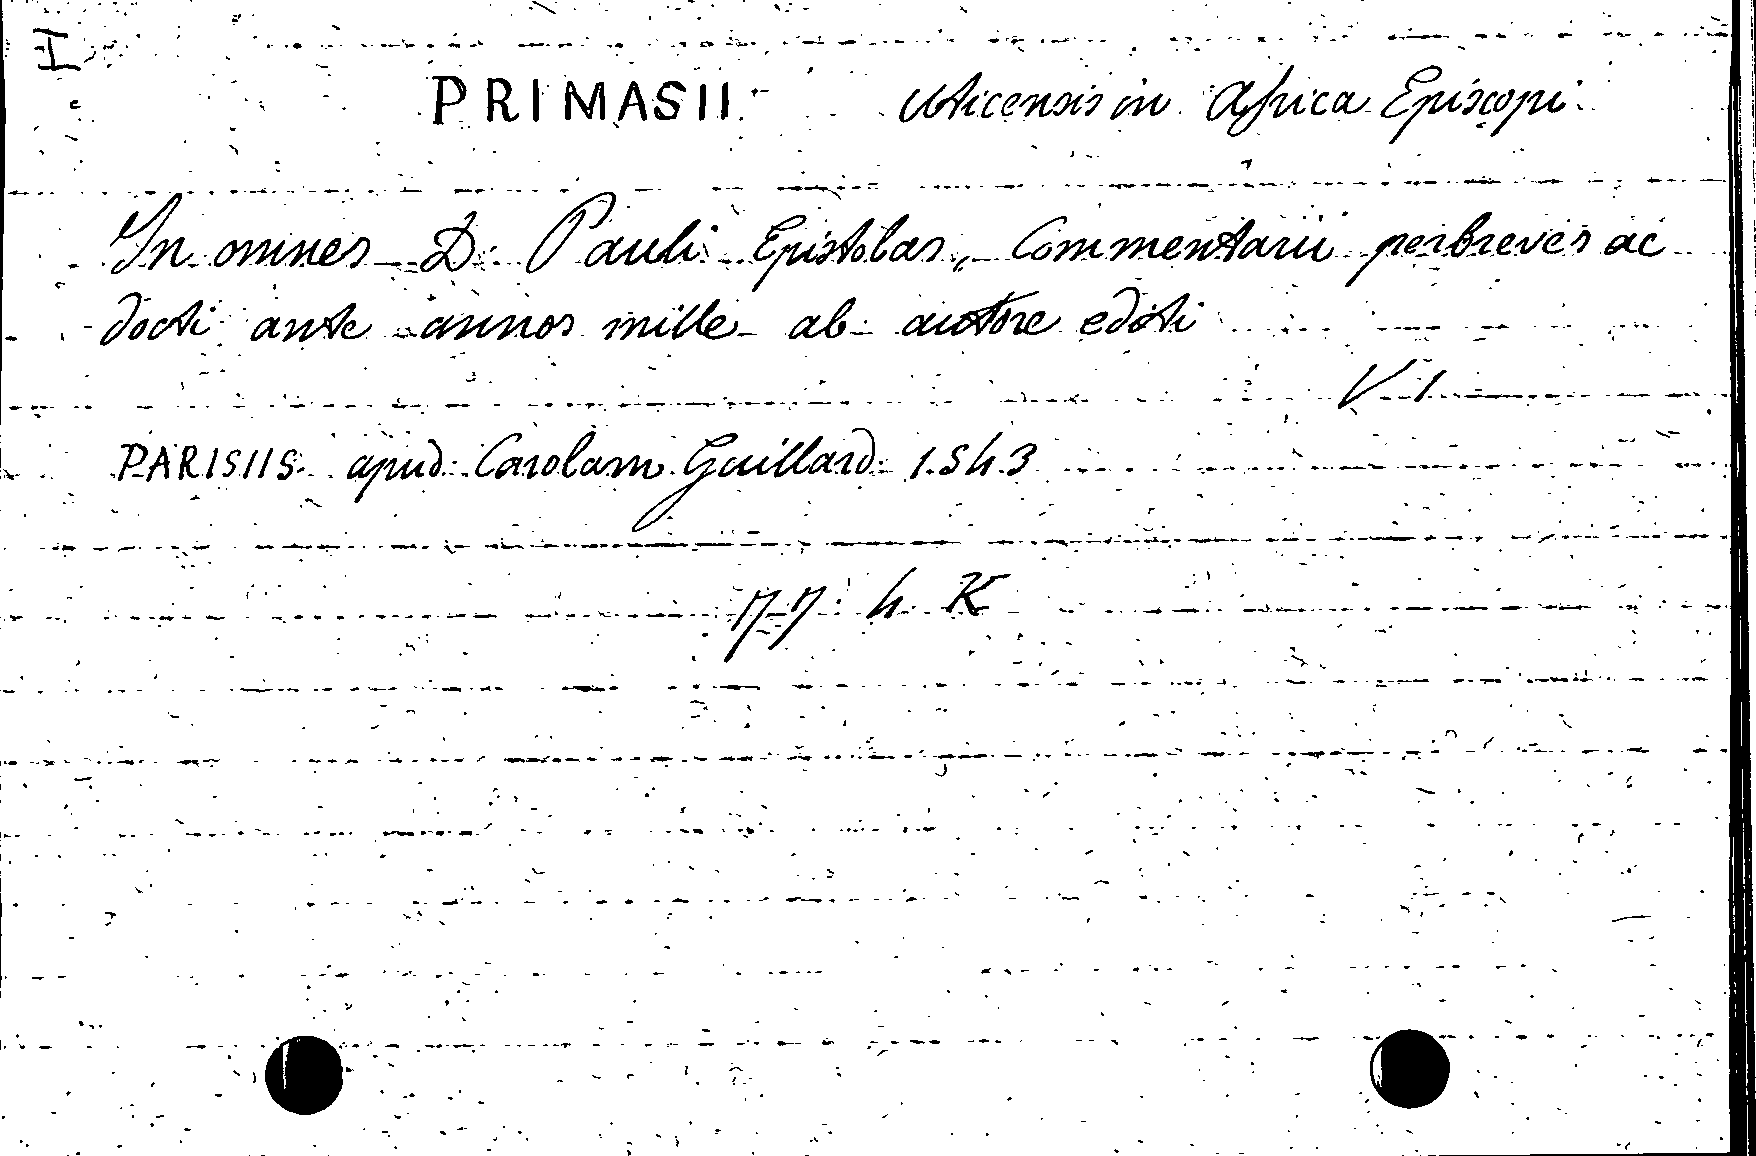 I
PRIMASII Uticensis in Africa Episcopi
In omnes D. Pauli Epistolas, Commentarii perbreves ac
docti ante annos mille ab autore editi
V. 1
PARISIIS apud Carolam Guillard 1543
77 4 K